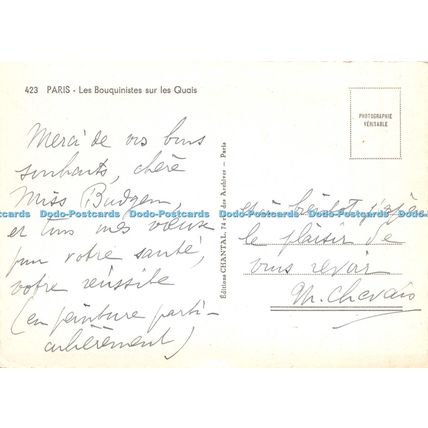 423 PARIS - Les Bouquinistes sur les Quais
PHOTOGRAPHIE
VÉRITABLE
Merci de vos bons
souhaits, chère
Miss Budgen,
Dodo-Postcards Dodo-Postcards Dodo-Postcards Dodo-Postcards Dodo-Postcards
et tous mes vœux
pour votre santé,
votre réussite
(en peinture parti-
culièrement)
Éditions CHANTAL, 74 des Archives - Paris
et à bientôt j'espère
le plaisir de
vous revoir
M. Chevais